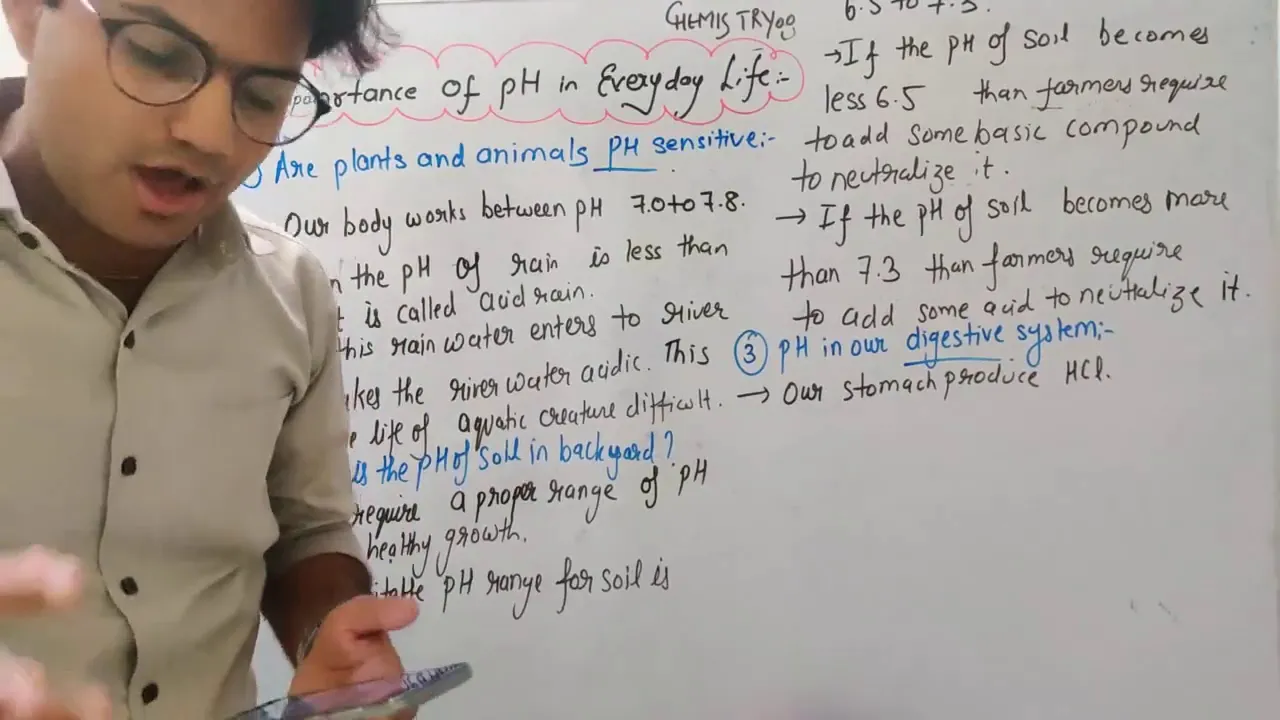 CHEMISTRY
portance of pH in Everyday Life:-
Are plants and animals PH sensitive:-
Our body works between pH 7.0to7.8.
the pH of rain is less than
is called acid rain.
this rain water enters to river
kes the river water acidic. This
life of aquatic creature difficult.
is the pH of soil in backyard?
require a proper range of pH
healthy growth.
pH range for soil is
6.5 to 7.3.
→If the PH of soil becomes
less 6.5 than farmers require
to add some basic compound
to neutralize it.
→ If the pH of soil becomes more
than 7.3 than farmers require
to add some acid to neutralize it.
③ pH in our digestive system:-
→ Our stomach produce HCl.